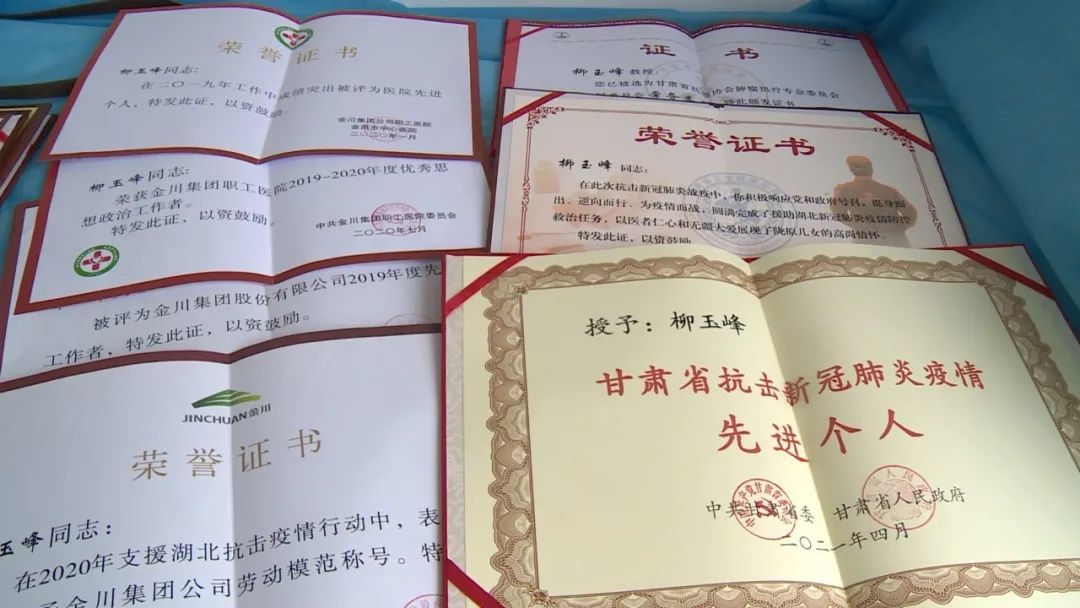 荣誉证书
柳玉峰同志:
在二〇一九年工作中成绩突出被评为医院先进
个人,特发此证,以资鼓励。
金川集团公司职工医院
金昌市中心医院
二〇二〇年一月
柳玉峰同志:
荣获金川集团职工医院2019-2020年度优秀思
想政治工作者。
特发此证,以资鼓励。
中共金川集团职工医院委员会
二〇二〇年七月
被评为金川集团股份有限公司2019年度先
工作者,特发此证,以资鼓励。
JINCHUAN金川
荣誉证书
玉峰同志:
在2020年支援湖北抗击疫情行动中,表
金川集团公司劳动模范称号。特
证书
柳玉峰教授:
您已被选为甘肃省抗癌协会肿瘤热疗专业委员会
常务委
特此颁发证书
荣誉证书
柳玉峰同志:
在此次抗击新冠肺炎战疫中,你积极响应党和政府号召,挺身而
出、逆向而行、为疫情而战,圆满完成了援助湖北新冠肺炎疫情防控
救治任务,以医者仁心和无疆大爱展现了陇原儿女的高尚情怀。
特发此证,以资鼓励
授予:柳玉峰
甘肃省抗击新冠肺炎疫情
先进个人
中共甘肃省委 甘肃省人民政府
二〇二一年四月